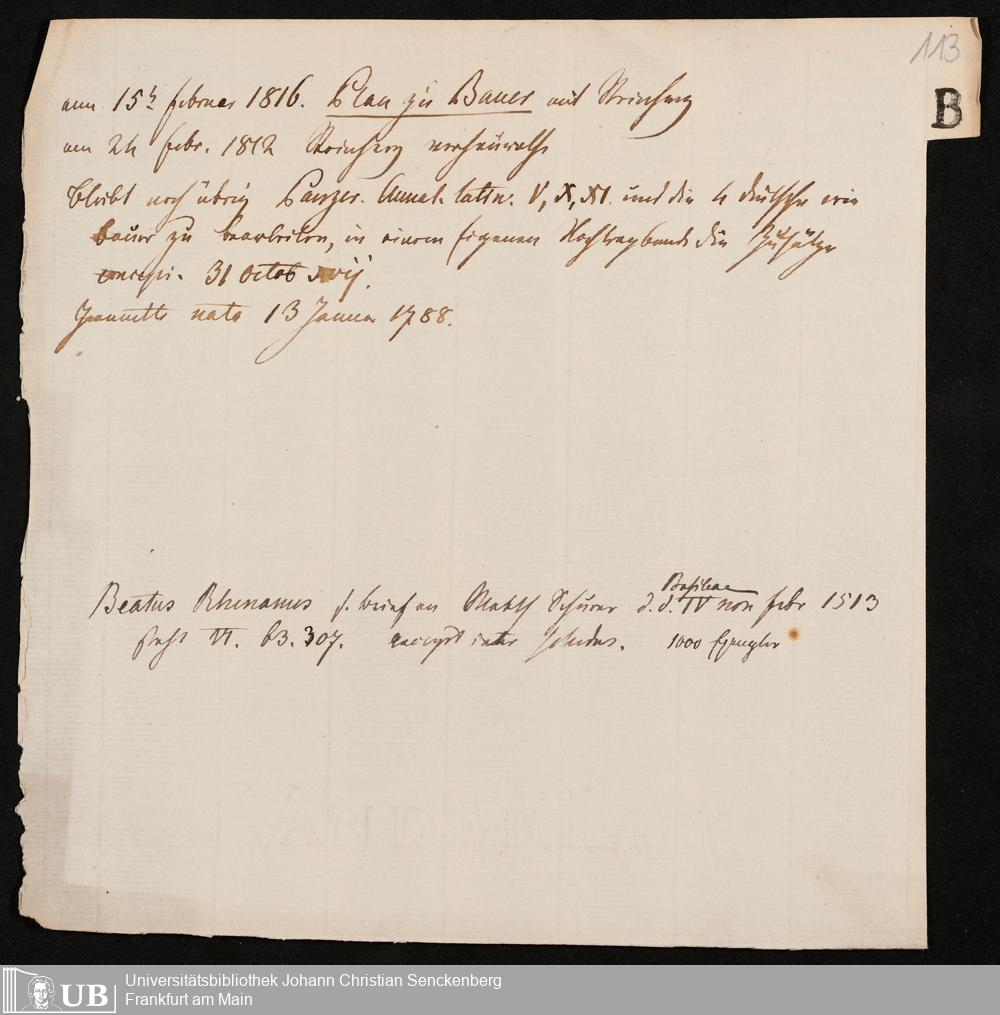 113
B
am 15t februar 1816. Plan zu Bauer mit
am 24 febr. 1812
bleibt noch übrig Panzer. Annal. latin. V, X, XI. und die 4 deutsche wie
bauer zu bearbeiten, in einem eigenen Nachtragbande die Zusätze
31 Octob xvij.
Jeannette nata 13 Januar 1788.
Beatus Rhenanus s. brief an Math Schürer d. d. Basileae IV non febr 1513
VI. 63. 307. inter schedas. 1000
UB
Universitätsbibliothek Johann Christian Senckenberg
Frankfurt am Main